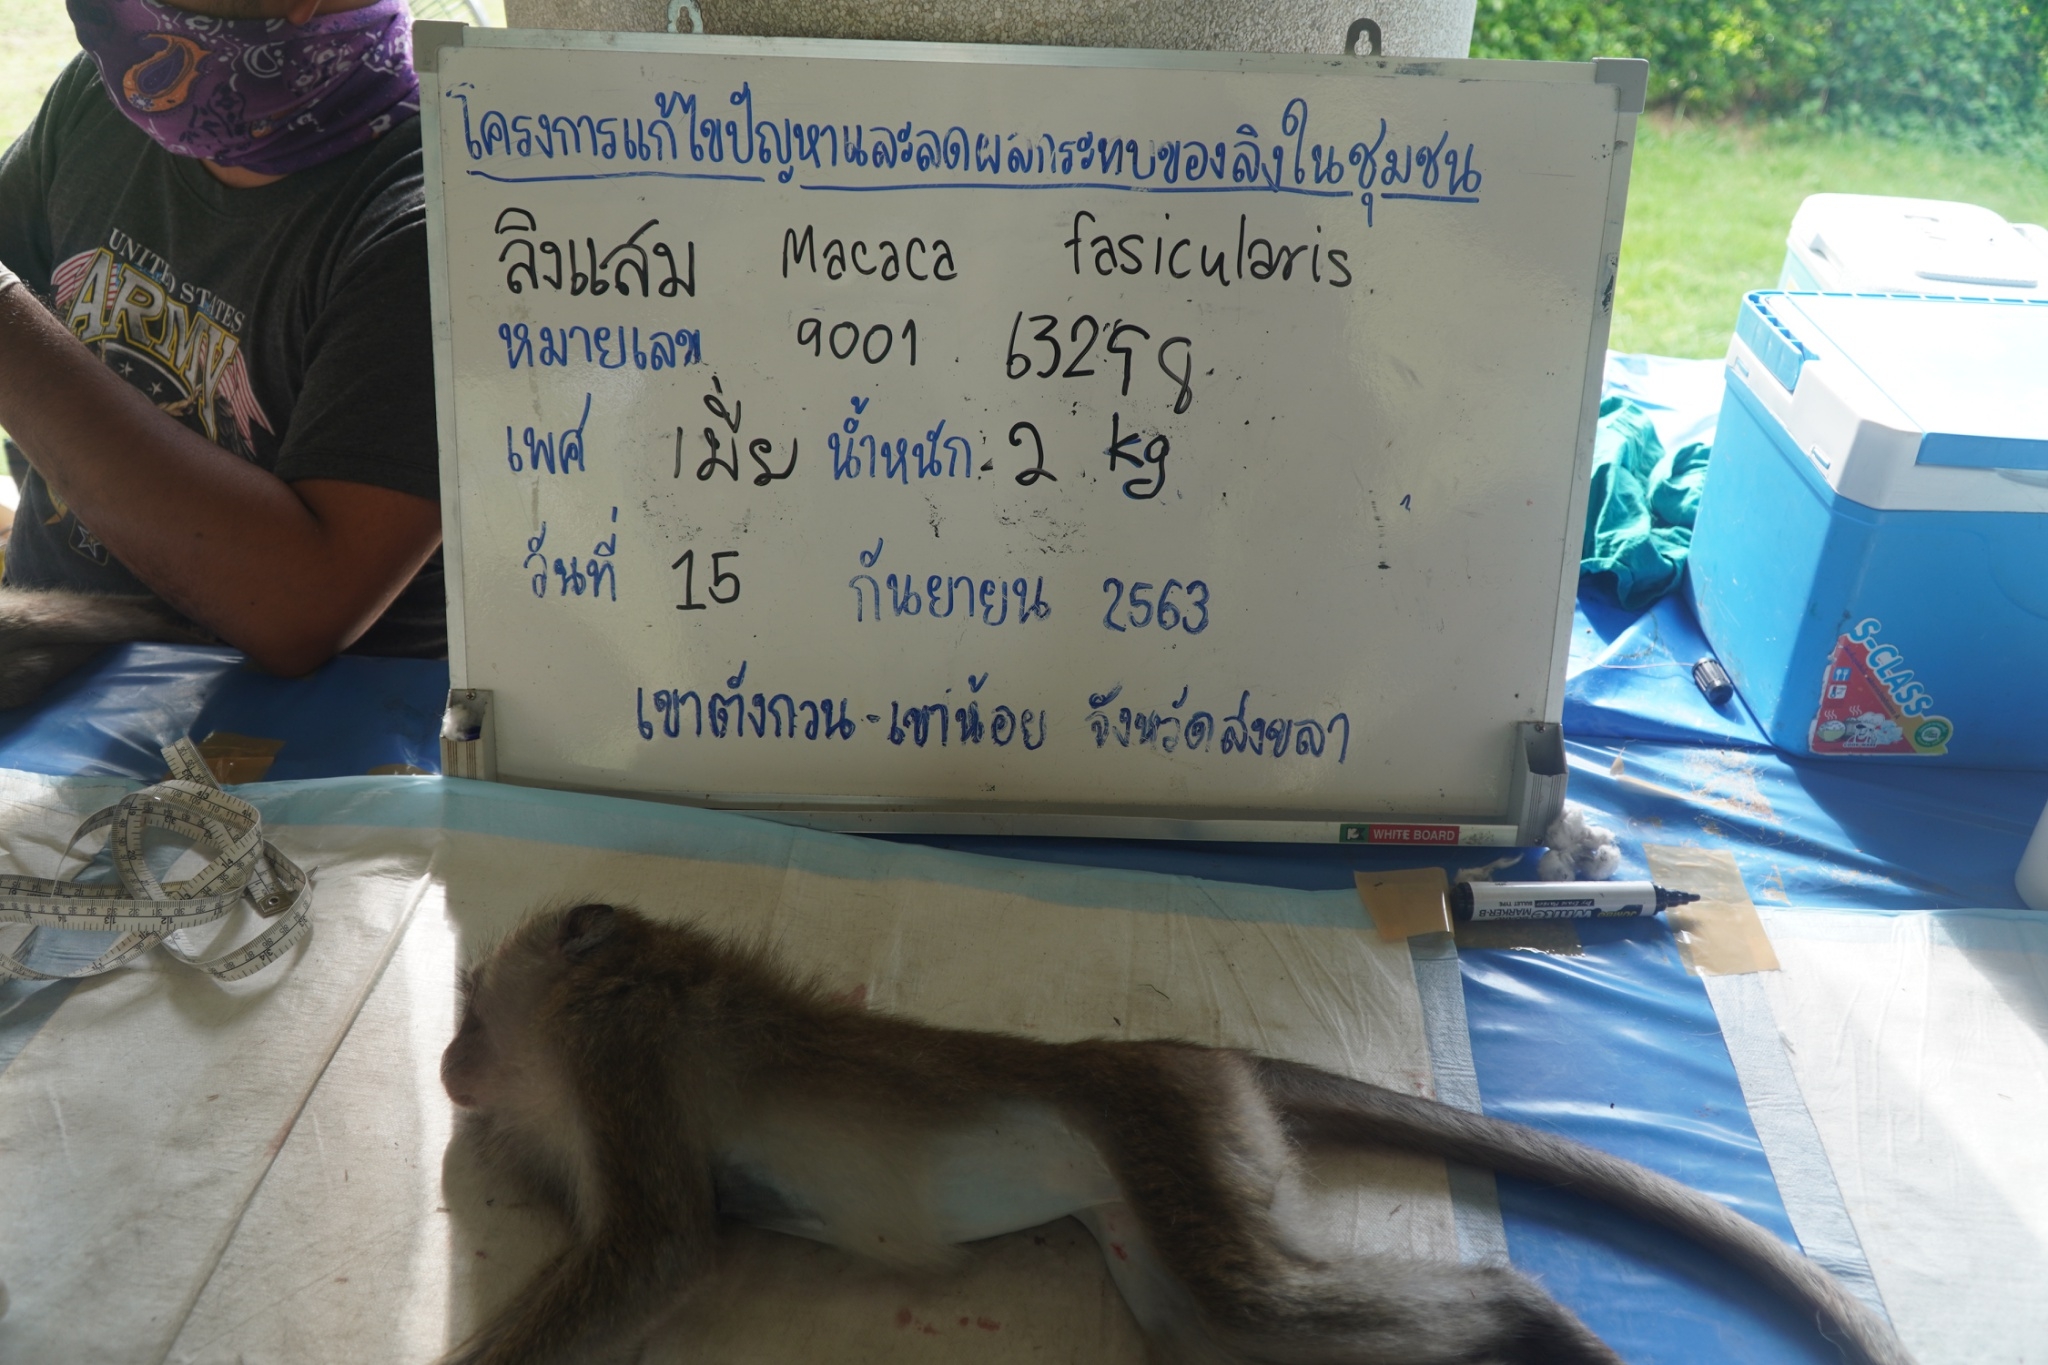 UNITED STATES
ARMY
โครงการแก้ไขปัญหาและลดผลกระทบของลิงในชุมชน
ลิงแสม Macaca fasicularis
หมายเลข 9001
เพศ เมีย น้ำหนัก 2 kg
วันที่ 15 กันยายน 2563
เขาตังกวน-เขาน้อย จังหวัดสงขลา
WHITE BOARD
S-CLASS